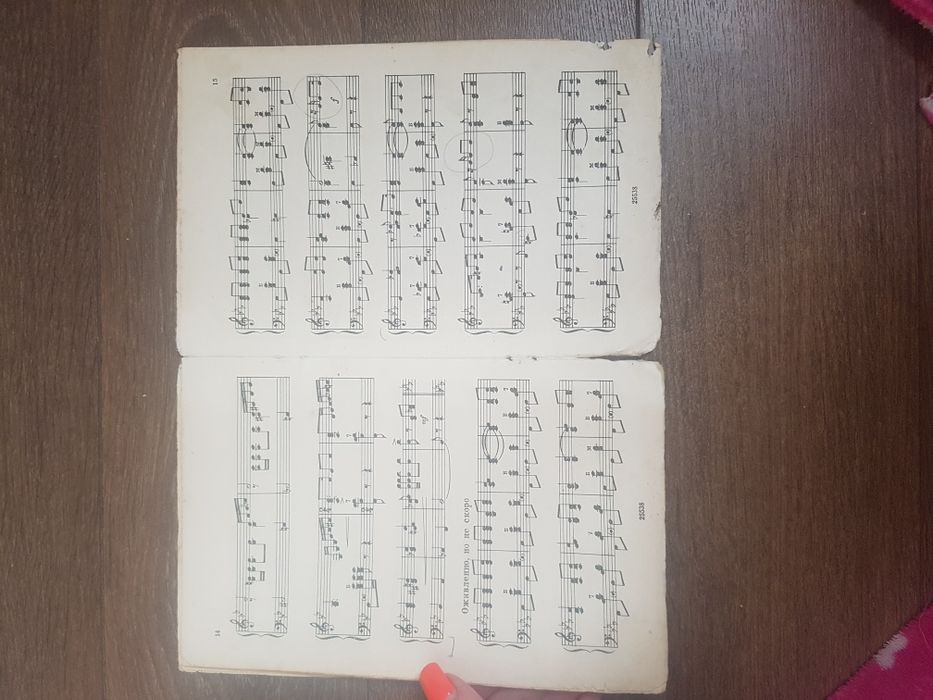 14
mf
Оживленно, но не скоро
25538
15
f
25538